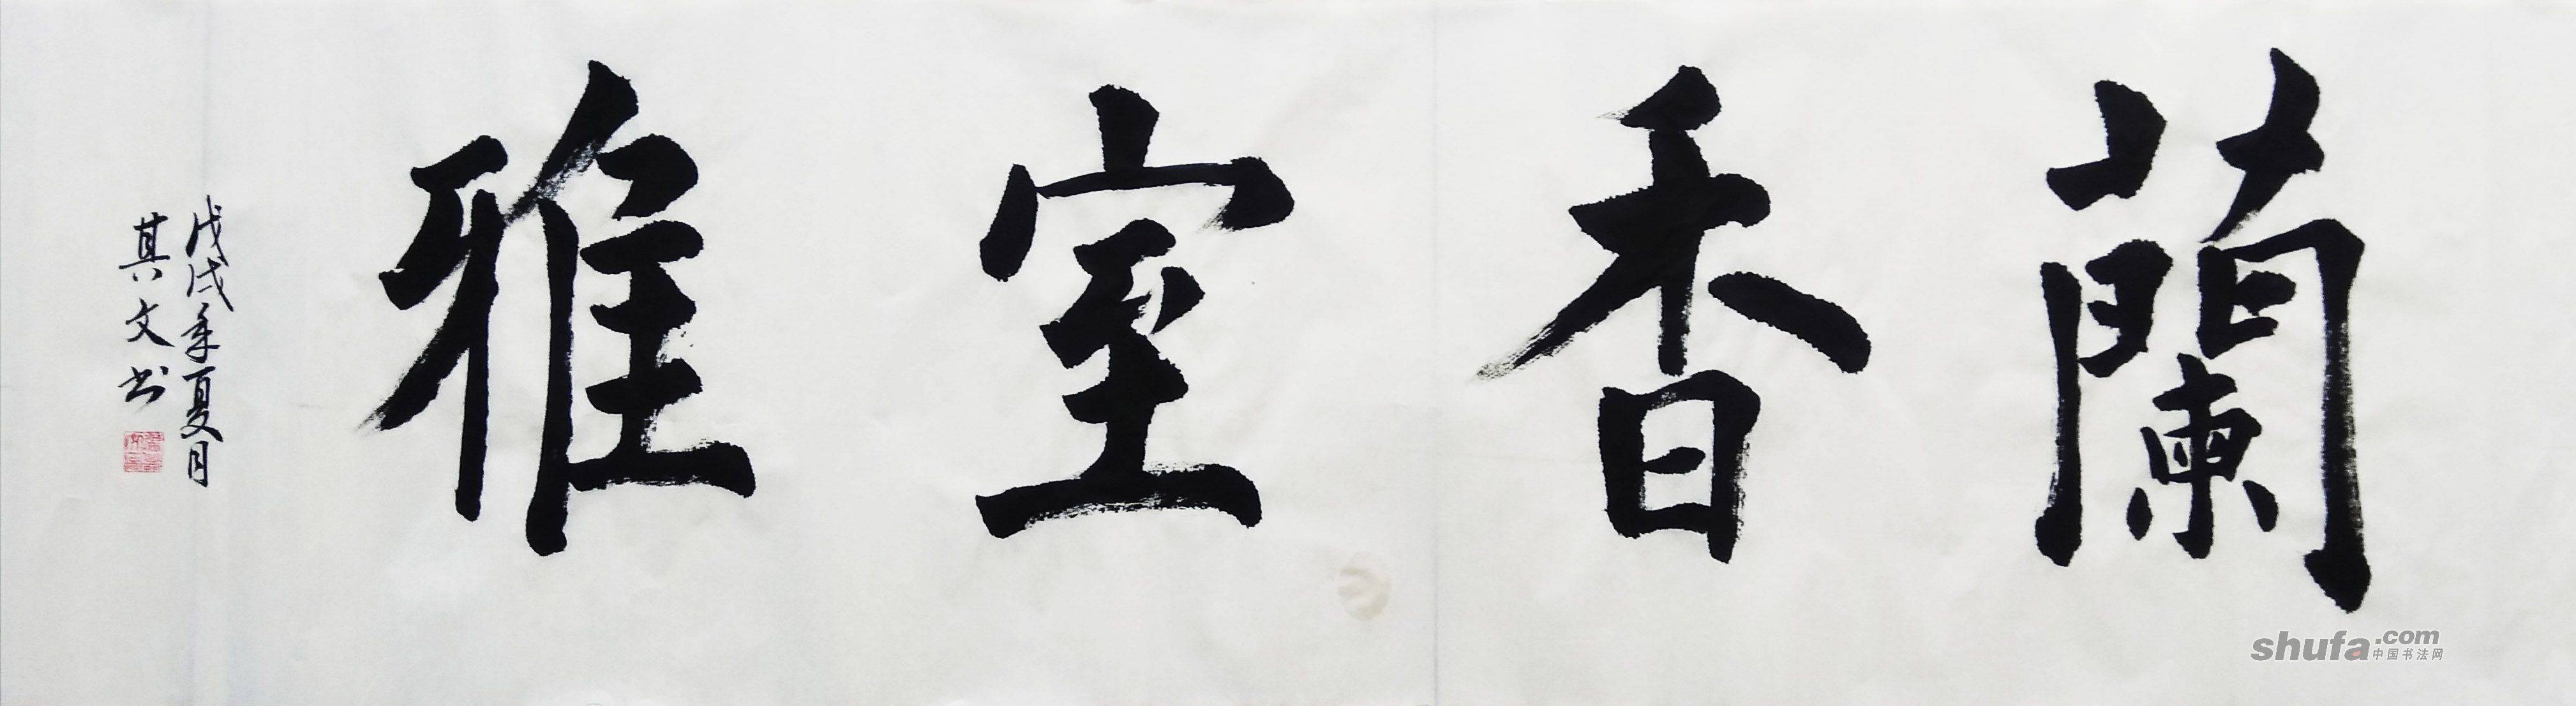 蘭香室雅
戊戌年夏月
其文书
shufa.com
中国书法网